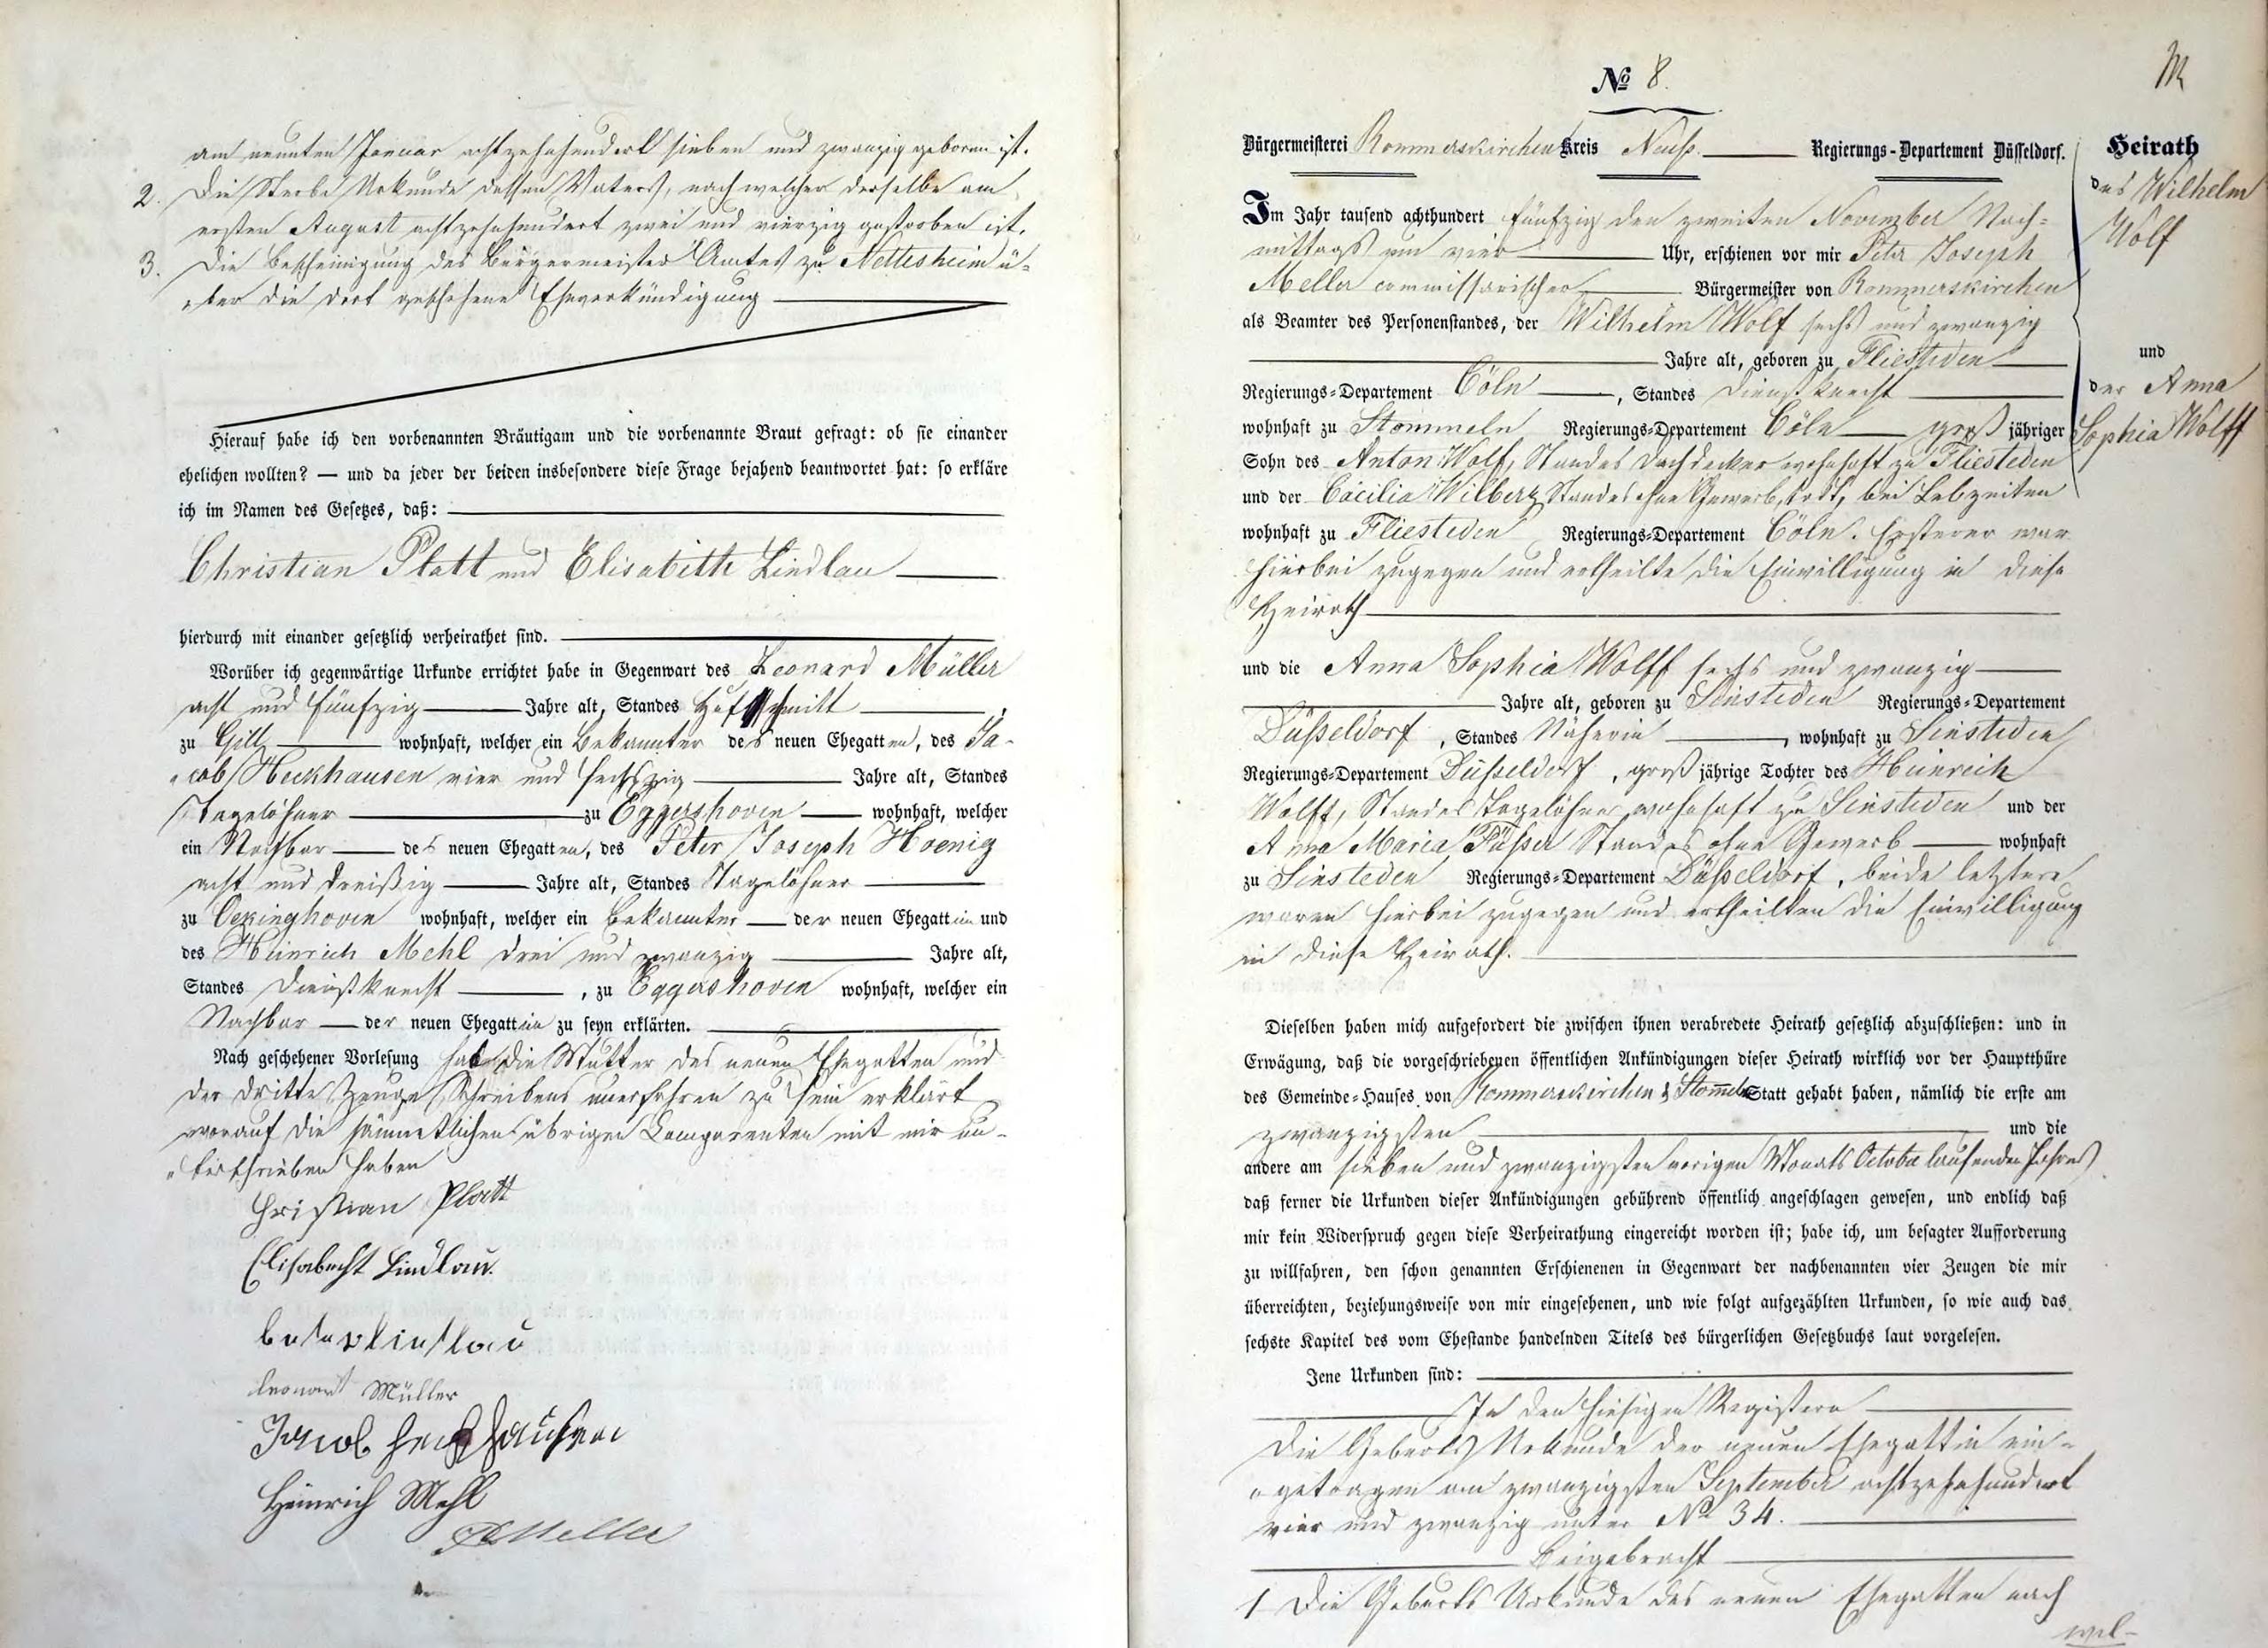 am neunten Januar achtzehnhundert sieben und zwanzig geboren ist.
2. Die Sterbe Urkunde dessen Vaters, nach welcher derselbe am
ersten August achtzehnhundert zwei und vierzig gestorben ist.
3. Die Bescheinigung des Bürgermeister Amtes zu Nettesheim ü-
"ber die dort geschehene Eheverkündigung
Hierauf habe ich den vorbenannten Bräutigam und die vorbenannte Braut gefragt: ob sie einander
ehelichen wollten? — und da jeder der beiden insbesondere diese Frage bejahend beantwortet hat: so erkläre
ich im Namen des Gesetzes, daß:
Christian Platt und Elisabeth Lindlau
hierdurch mit einander gesetzlich verheirathet sind.
Worüber ich gegenwärtige Urkunde errichtet habe in Gegenwart des Leonard Müller
acht und fünfzig Jahre alt, Standes Hufschmitt,
zu Gill wohnhaft, welcher ein Bekannter des neuen Ehegatten, des Ja-
"cob Heckhausen vier und sechszig Jahre alt, Standes
Tagelöhner zu Eggershoven wohnhaft, welcher
ein Nachbar des neuen Ehegatten, des Peter Joseph Hoenig
acht und dreißig Jahre alt, Standes Tagelöhner
zu Oekinghoven wohnhaft, welcher ein Bekannter der neuen Ehegattin und
des Heinrich Mehl drei und zwanzig Jahre alt,
Standes Dienstknecht, zu Eggershoven wohnhaft, welcher ein
Nachbar der neuen Ehegattin zu seyn erklärten.
Nach geschehener Vorlesung hat die Mutter des neuen Ehegatten und
der dritte Zeuge Schreibens unerfahren zu sein erklärt
worauf die sämmtlichen übrigen Comparenten mit mir un-
"terschrieben haben
Christian Platt
Elisabecht Lindlau.
Leonart Müller
Jacob Heckhausen
Heinrich Mehl
PJMeller
№ 8.
Bürgermeisterei Rommerskirchen Kreis Neuß. Regierungs-Departement Düsseldorf.
Im Jahr tausend achthundert fünfzig den zweiten November Nach-
mittags um vier Uhr, erschienen vor mir Peter Joseph
Meller commissarischer Bürgermeister von Rommerskirchen
als Beamter des Personenstandes, der Wilhelm Wolf sechs und zwanzig
Jahre alt, geboren zu Fliesteden
Regierungs-Departement Cöln, Standes Dienstknecht
wohnhaft zu Stommeln Regierungs-Departement Cöln groß jähriger
Sohn des Anton Wolf, Standes Dachdecker wohnhaft zu Fliesteden
und der Cäcilia Wilberz Standes ohne Gewerb, todt, bei Lebzeiten
wohnhaft zu Fliesteden Regierungs-Departement Cöln. Ersterer war
hierbei zugegen und ertheilte die Einwilligung in diese
Heirath
und die Anna Sophia Wolff sechs und zwanzig
Jahre alt, geboren zu Sinsteden Regierungs-Departement
Düsseldorf, Standes Näherin, wohnhaft zu Sinsteden
Regierungs-Departement Düsseldorf, groß jährige Tochter des Heinrich
Wolff, Standes Tagelöhner wohnhaft zu Sinsteden und der
Anna Maria Füsser Standes ohne Gewerb wohnhaft
zu Sinsteden Regierungs-Departement Düsseldorf, beide letztere
waren hierbei zugegen und ertheilten die Einwilligung
in diese Heirath.
Dieselben haben mich aufgefordert die zwischen ihnen verabredete Heirath gesetzlich abzuschließen: und in
Erwägung, daß die vorgeschriebenen öffentlichen Ankündigungen dieser Heirath wirklich vor der Hauptthüre
des Gemeinde-Hauses von Rommerskirchen & Stommeln Statt gehabt haben, nämlich die erste am
zwanzigsten und die
andere am sieben und zwanzigsten vorigen Monats October laufenden Jahres
daß ferner die Urkunden dieser Ankündigungen gebührend öffentlich angeschlagen gewesen, und endlich daß
mir kein Widerspruch gegen diese Verheirathung eingereicht worden ist; habe ich, um besagter Aufforderung
zu willfahren, den schon genannten Erschienenen in Gegenwart der nachbenannten vier Zeugen die mir
überreichten, beziehungsweise von mir eingesehenen, und wie folgt aufgezählten Urkunden, so wie auch das
sechste Kapitel des vom Ehestande handelnden Titels des bürgerlichen Gesetzbuchs laut vorgelesen.
Jene Urkunden sind:
In den hiesigen Registern
Die Geburts Urkunde der neuen Ehegattin ein-
"getragen am zwanzigsten September achtzehnhundert
vier und zwanzig unter No 34.
Beigebracht
1 Die Geburts Urkunde des neuen Ehegatten nach
wel-
Heirath
des Wilhelm
Wolf
und
der Anna
Sophia Wolff